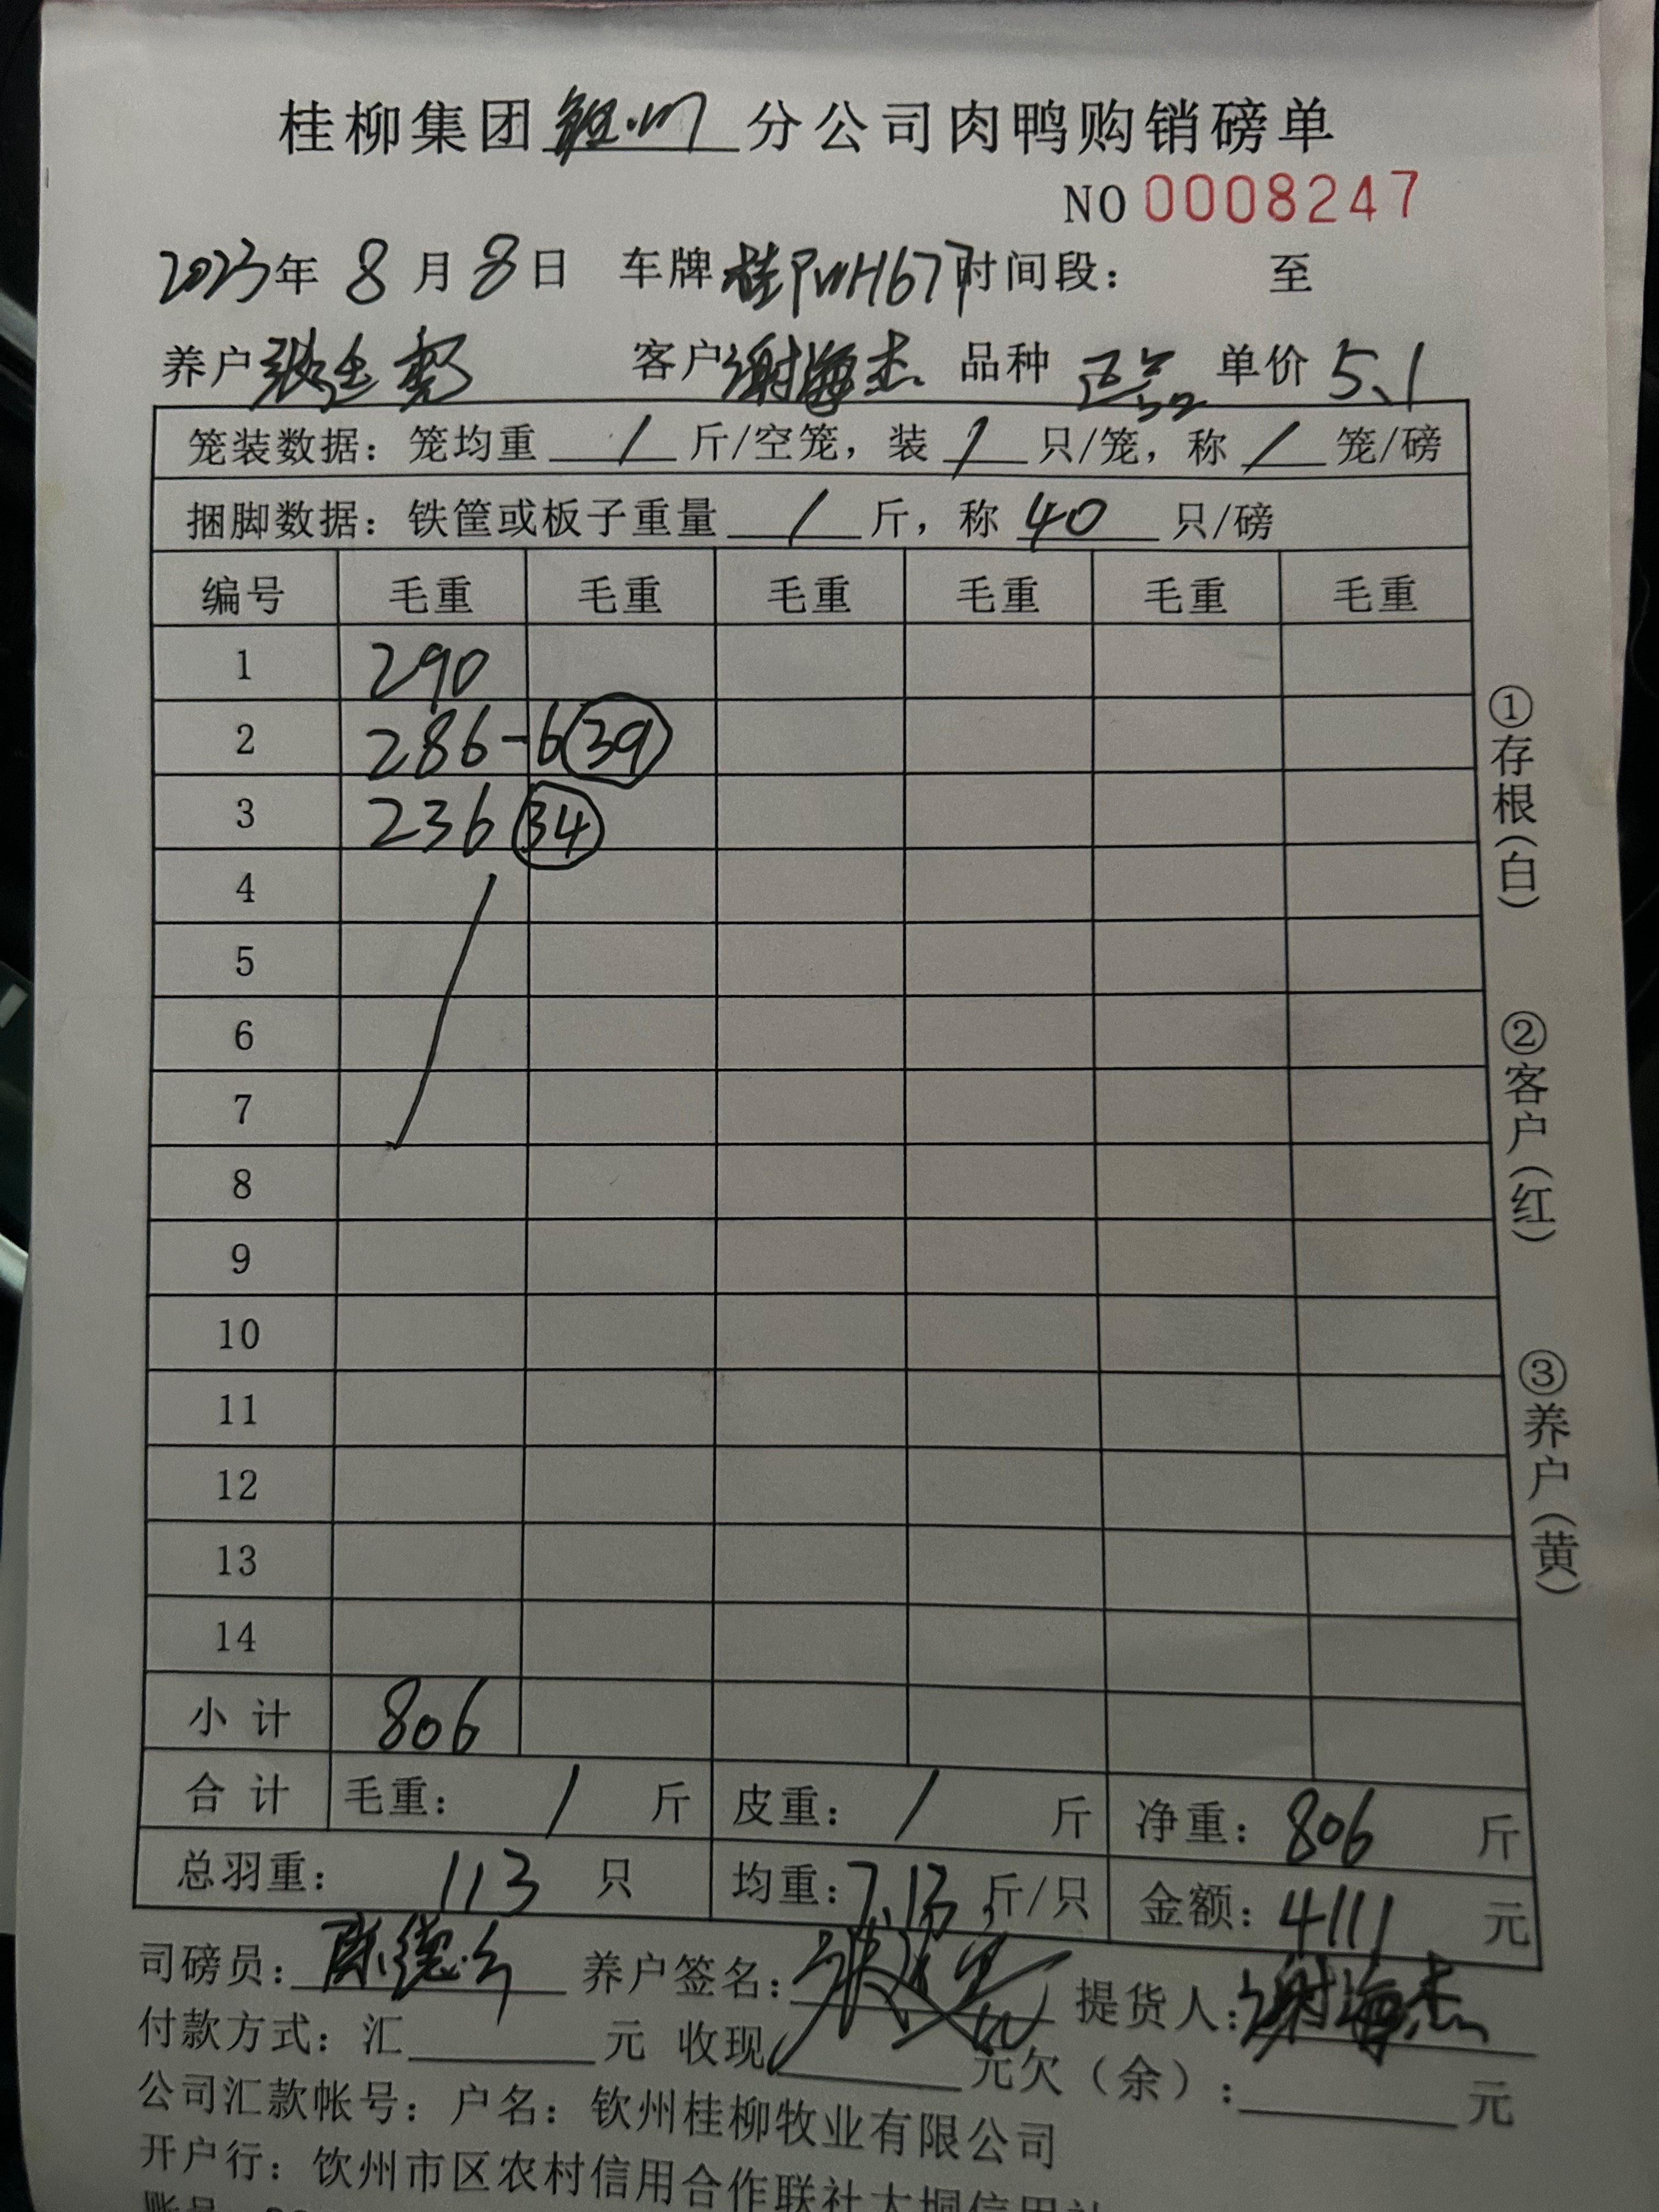 桂柳集团 分公司肉鸭购销磅单
NO 0008247
2023年 8月 8日 车牌 桂 H677 时间段： 至
养户 张 客户 谢海杰 品种 单价 5.1
笼装数据：笼均重 / 斤/空笼，装 / 只/笼，称 / 笼/磅
捆脚数据：铁筐或板子重量 / 斤，称 40 只/磅
编号 毛重 毛重 毛重 毛重 毛重 毛重
1 290
2 286-6 39
3 236 34
4
5
6
7
8
9
10
11
12
13
14
小计 806
合计 毛重： / 斤 皮重： / 斤 净重： 806 斤
总羽重： 113 只 均重： 7.13 斤/只 金额： 4111 元
司磅员： 陈德 养户签名： 张 提货人： 谢海杰
付款方式：汇 元 收现 元欠（余）： 元
公司汇款帐号：户名：钦州桂柳牧业有限公司
开户行：钦州市区农村信用合作联社大垌信用社
①存根（白）
②客户（红）
③养户（黄）